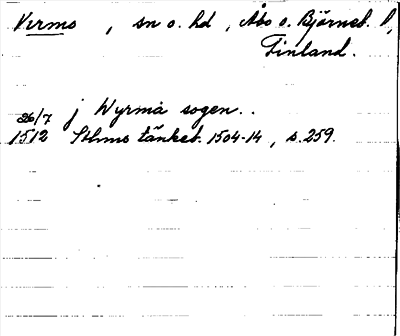 Virmo , sn o. hd , Åbo o. Björneb. l,
Finland.
26/7 j Wyrma sogen..
1512 Sthms tänkeb. 1504-14, s. 259.